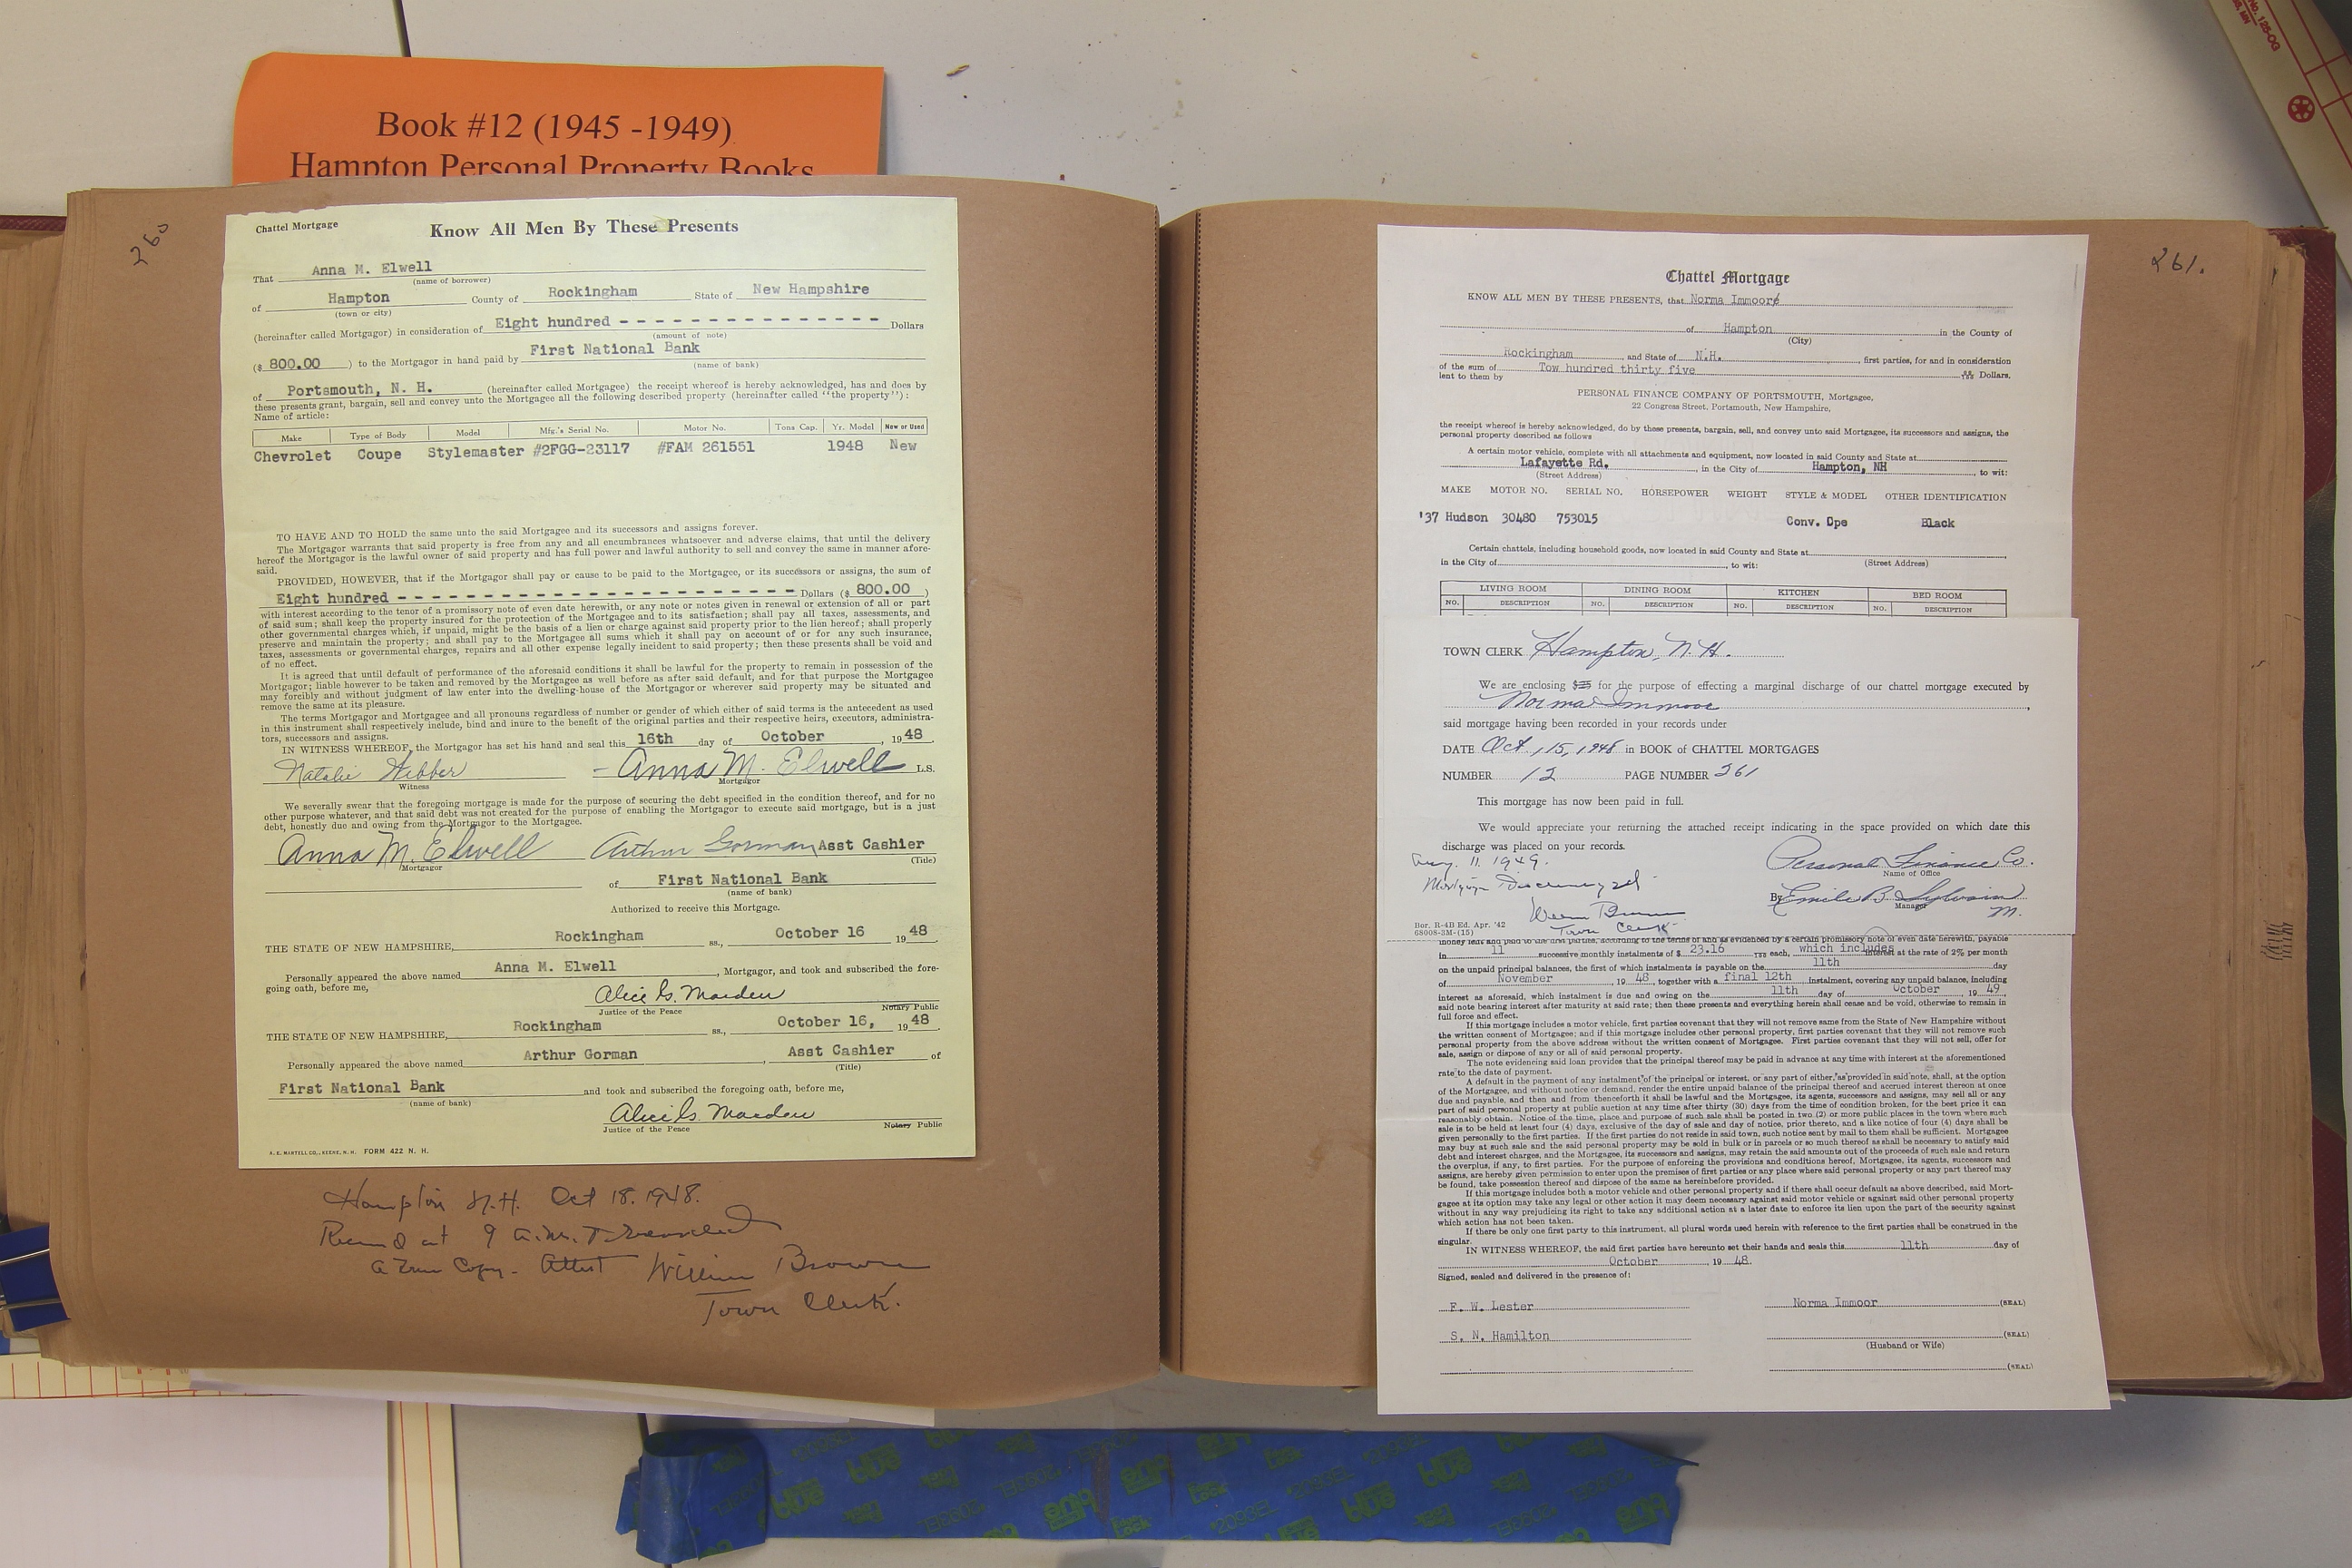 Book #12 (1945 -1949)
Hampton Personal Property Books
260
Chattel Mortgage
Know All Men By These Presents
That Anna M. Elwell
(name of borrower)
of Hampton County of Rockingham State of New Hampshire
(town or city)
(hereinafter called Mortgagor) in consideration of Eight hundred - - - - - - - - - - - - - - - Dollars
(amount of note)
($ 800.00 ) to the Mortgagor in hand paid by First National Bank
(name of bank)
of Portsmouth, N. H. (hereinafter called Mortgagee) the receipt whereof is hereby acknowledged, has and does by
these presents grant, bargain, sell and convey unto the Mortgagee all the following described property (hereinafter called "the property"):
Name of article:
Make Type of Body Model Mfg.'s Serial No. Motor No. Tons Cap. Yr. Model New or Used
Chevrolet Coupe Stylemaster #2FGG-23117 #FAM 261551 1948 New
TO HAVE AND TO HOLD the same unto the said Mortgagee and its successors and assigns forever.
The Mortgagor warrants that said property is free from any and all encumbrances whatsoever and adverse claims, that until the delivery
hereof the Mortgagor is the lawful owner of said property and has full power and lawful authority to sell and convey the same in manner afore-
said.
PROVIDED, HOWEVER, that if the Mortgagor shall pay or cause to be paid to the Mortgagee, or its successors or assigns, the sum of
Eight hundred - - - - - - - - - - - - - - - - - - - - - - - - Dollars ($ 800.00 )
with interest according to the tenor of a promissory note of even date herewith, or any note or notes given in renewal or extension of all or part
of said sum; shall keep the property insured for the protection of the Mortgagee and to its satisfaction; shall pay all taxes, assessments, and
other governmental charges which, if unpaid, might be the basis of a lien or charge against said property prior to the lien hereof; shall properly
preserve and maintain the property; and shall pay to the Mortgagee all sums which it shall pay on account of or for any such insurance,
taxes, assessments or governmental charges, repairs and all other expense legally incident to said property; then these presents shall be void and
of no effect.
It is agreed that until default of performance of the aforesaid conditions it shall be lawful for the property to remain in possession of the
Mortgagor; liable however to be taken and removed by the Mortgagee as well before as after said default, and for that purpose the Mortgagee
may forcibly and without judgment of law enter into the dwelling-house of the Mortgagor or wherever said property may be situated and
remove the same at its pleasure.
The terms Mortgagor and Mortgagee and all pronouns regardless of number or gender of which either of said terms is the antecedent as used
in this instrument shall respectively include, bind and inure to the benefit of the original parties and their respective heirs, executors, administra-
tors, successors and assigns.
IN WITNESS WHEREOF, the Mortgagor has set his hand and seal this 16th day of October , 19 48 .
Natalie Webber Anna M. Elwell L.S.
Witness Mortgagor
We severally swear that the foregoing mortgage is made for the purpose of securing the debt specified in the condition thereof, and for no
other purpose whatever, and that said debt was not created for the purpose of enabling the Mortgagor to execute said mortgage, but is a just
debt, honestly due and owing from the Mortgagor to the Mortgagee.
Anna M. Elwell Arthur Gorman Asst Cashier
Mortgagor (Title)
of First National Bank
(name of bank)
Authorized to receive this Mortgage.
THE STATE OF NEW HAMPSHIRE, Rockingham ss., October 16 19 48
Personally appeared the above named Anna M. Elwell , Mortgagor, and took and subscribed the fore-
going oath, before me,
Alice G. Marden
Justice of the Peace Notary Public
THE STATE OF NEW HAMPSHIRE, Rockingham ss., October 16, 19 48
Personally appeared the above named Arthur Gorman , Asst Cashier of
(Title)
First National Bank and took and subscribed the foregoing oath, before me,
(name of bank)
Alice G. Marden
Justice of the Peace Notary Public
A. E. MARTELL CO., KEENE, N. H. FORM 422 N. H.
Hampton N.H. Oct 18. 1948.
Received at 9 a.m. & recorded
a True Copy - Attest William Brown
Town Clerk.
261.
Chattel Mortgage
KNOW ALL MEN BY THESE PRESENTS, that Norma Immoore
of Hampton in the County of
(City)
Rockingham , and State of N.H. , first parties, for and in consideration
of the sum of Tow hundred thirty five Dollars,
lent to them by
PERSONAL FINANCE COMPANY OF PORTSMOUTH, Mortgagee,
22 Congress Street, Portsmouth, New Hampshire,
the receipt whereof is hereby acknowledged, do by these presents, bargain, sell, and convey unto said Mortgagee, its successors and assigns, the
personal property described as follows
A certain motor vehicle, complete with all attachments and equipment, now located in said County and State at
Lafayette Rd. , in the City of Hampton, NH , to wit:
(Street Address)
MAKE MOTOR NO. SERIAL NO. HORSEPOWER WEIGHT STYLE & MODEL OTHER IDENTIFICATION
'37 Hudson 30480 753015 Conv. Cpe Black
Certain chattels, including household goods, now located in said County and State at
in the City of , to wit: (Street Address)
LIVING ROOM DINING ROOM KITCHEN BED ROOM
NO. DESCRIPTION NO. DESCRIPTION NO. DESCRIPTION NO. DESCRIPTION
TOWN CLERK Hampton, N.H.
We are enclosing for the purpose of effecting a marginal discharge of our chattel mortgage executed by
Norma Immoore ,
said mortgage having been recorded in your records under
DATE Oct. 15, 1948 in BOOK of CHATTEL MORTGAGES
NUMBER 12 PAGE NUMBER 261
This mortgage has now been paid in full.
We would appreciate your returning the attached receipt indicating in the space provided on which date this
discharge was placed on your records.
11. 1949. Personal Finance Co.
Name of Office
Mortgage Discharged
By Emile B. Sylvain
Manager
M.
Brown
Town Clerk
Bor. R-4B Ed. Apr. '42
68908-3M-(15)
money lent and paid to the first parties, according to the terms of and as evidenced by a certain promissory note of even date herewith, payable
in 11 successive monthly instalments of $ 23.16 each, which includes interest at the rate of 2% per month
on the unpaid principal balances, the first of which instalments is payable on the 11th day
of November , 19 48, together with a final 12th instalment, covering any unpaid balance, including
interest as aforesaid, which instalment is due and owing on the 11th day of October , 19 49 ,
said note bearing interest after maturity at said rate; then these presents and everything herein shall cease and be void, otherwise to remain in
full force and effect.
If this mortgage includes a motor vehicle, first parties covenant that they will not remove same from the State of New Hampshire without
the written consent of Mortgagee; and if this mortgage includes other personal property, first parties covenant that they will not remove such
personal property from the above address without the written consent of Mortgagee. First parties covenant that they will not sell, offer for
sale, assign or dispose of any or all of said personal property.
The note evidencing said loan provides that the principal thereof may be paid in advance at any time with interest at the aforementioned
rate to the date of payment.
A default in the payment of any instalment of the principal or interest, or any part of either, as provided in said note, shall, at the option
of the Mortgagee, and without notice or demand, render the entire unpaid balance of the principal thereof and accrued interest thereon at once
due and payable, and then and from thenceforth it shall be lawful and the Mortgagee, its agents, successors and assigns, may sell all or any
part of said personal property at public auction at any time after thirty (30) days from the time of condition broken, for the best price it can
reasonably obtain. Notice of the time, place and purpose of such sale shall be posted in two (2) or more public places in the town where such
sale is to be held at least four (4) days, exclusive of the day of sale and day of notice, prior thereto, and a like notice of four (4) days shall be
given personally to the first parties. If the first parties do not reside in said town, such notice sent by mail to them shall be sufficient. Mortgagee
may buy at such sale and the said personal property may be sold in bulk or in parcels or so much thereof as shall be necessary to satisfy said
debt and interest charges, and the Mortgagee, its successors and assigns, may retain the said amounts out of the proceeds of such sale and return
the overplus, if any, to first parties. For the purpose of enforcing the provisions and conditions hereof, Mortgagee, its agents, successors and
assigns, are hereby given permission to enter upon the premises of first parties or any place where said personal property or any part thereof may
be found, take possession thereof and dispose of the same as hereinbefore provided.
If this mortgage includes both a motor vehicle and other personal property and if there shall occur default as above described, said Mort-
gagee at its option may take any legal or other action it may deem necessary against said motor vehicle or against said other personal property
without in any way prejudicing its right to take any additional action at a later date to enforce its lien upon the part of the security against
which action has not been taken.
If there be only one first party to this instrument, all plural words used herein with reference to the first parties shall be construed in the
singular.
IN WITNESS WHEREOF, the said first parties have hereunto set their hands and seals this 11th day of
October , 19 48.
Signed, sealed and delivered in the presence of:
F. W. Lester Norma Immoor (SEAL)
S. N. Hamilton (SEAL)
(Husband or Wife)
(SEAL)